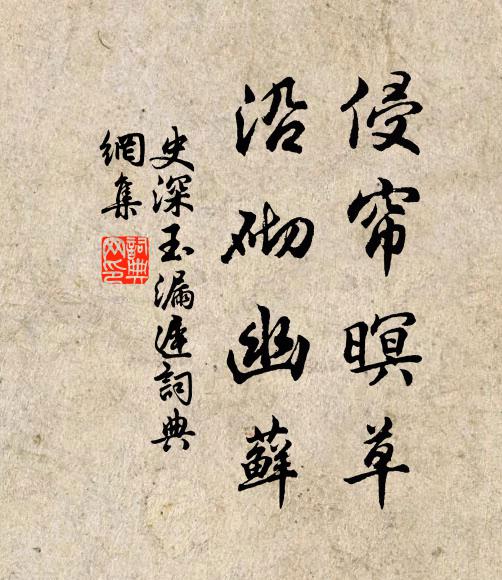 侵帘暝草
沿砌幽蘚
史深玉漏遲詞典
網集
詞典
网印